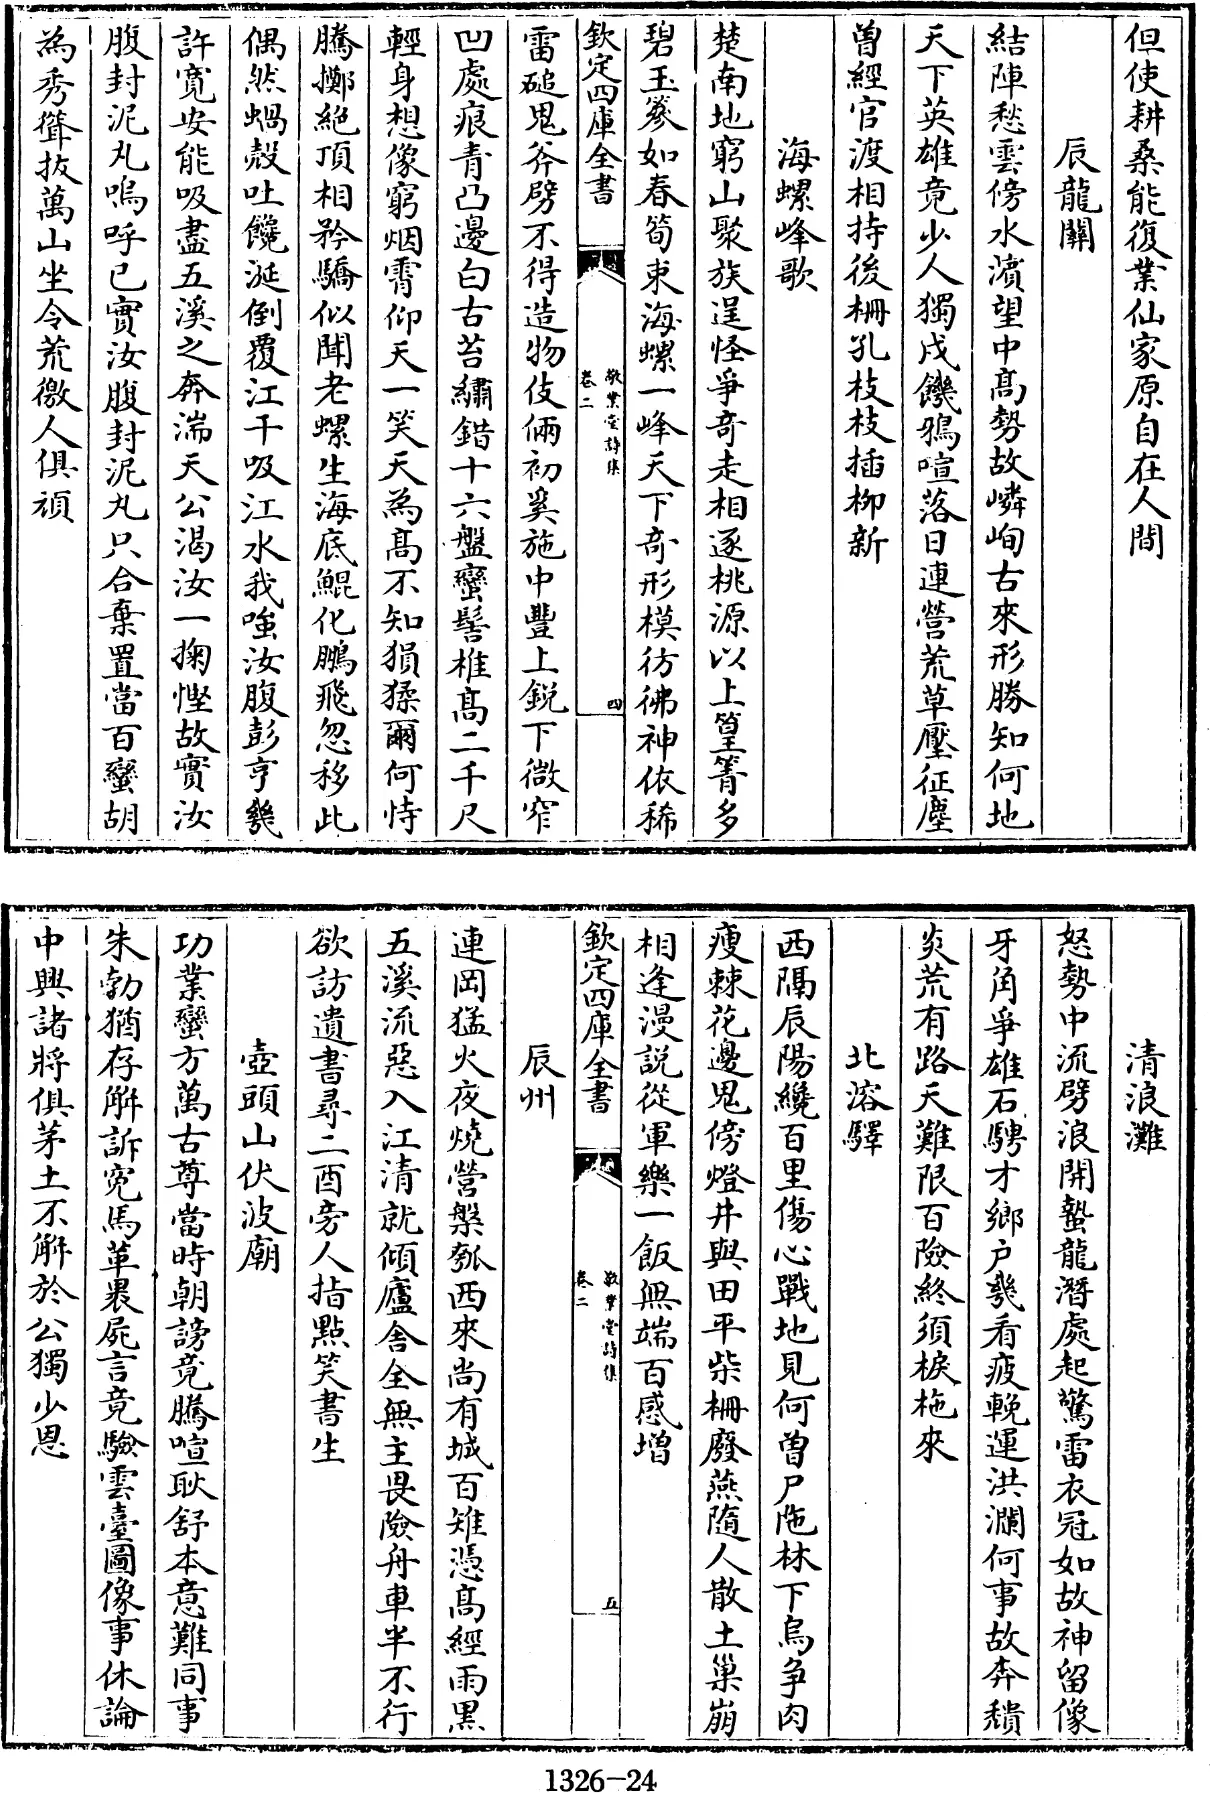 但使耕桑能復業仙家原自在人間
辰龍關
結陣愁雲傍水濱望中髙勢故嶙峋古來形勝知何地
天下英雄竟少人獨戍饑鴉喧落日連營荒草壓征塵
曽經官渡相持後柵孔枝枝插栁新
海螺峰歌
楚南地窮山聚族逞怪爭奇走相逐桃源以上篁箐多
碧玉篸如春筍束海螺一峰天下奇形模彷彿神依稀
欽定四庫全書
敬業堂詩集
卷二
四
雷磓鬼斧劈不得造物伎倆初奚施中豐上鋭下微窄
凹處痕青凸邊白古苔繡錯十六盤蠻髻椎髙二千尺
輕身想像窮烟霄仰天一笑天為髙不知猿猱爾何恃
騰擲絶頂相矜驕似聞老螺生海底鯤化鵬飛忽移此
偶然蝸殻吐饞涎倒覆江干吸江水我嗤汝腹彭亨幾
許寛安能吸盡五溪之奔湍天公渴汝一掬慳故實汝
腹封泥丸嗚呼已實汝腹封泥丸只合棄置當百蠻胡
為秀聳抜萬山坐令荒徼人俱頑
清浪灘
怒勢中流劈浪開蟄龍潛處起驚雷衣冠如故神留像
牙角爭雄石騁才鄉户幾看疲輓運洪瀾何事故奔穨
炎荒有路天難限百險終須捩柂來
北溶驛
西隔辰陽纔百里傷心戰地見何曽尸陁林下烏争肉
瘦棘花邊鬼傍燈井與田平柴柵廢燕隨人散土巢崩
相逢漫説從軍樂一飯無端百感增
欽定四庫全書
敬業堂詩集
卷二
五
辰州
連岡猛火夜燒營槃瓠西來尚有城百雉憑髙經雨黒
五溪流惡入江清就傾廬舍全無主畏險舟車半不行
欲訪遺書尋二酉旁人指點笑書生
壺頭山伏波廟
功業蠻方萬古尊當時朝謗竟騰喧耿舒本意難同事
朱勃猶存解訴寃馬革裹屍言竟驗雲臺圖像事休論
中興諸將俱茅土不解於公獨少恩
1326-24